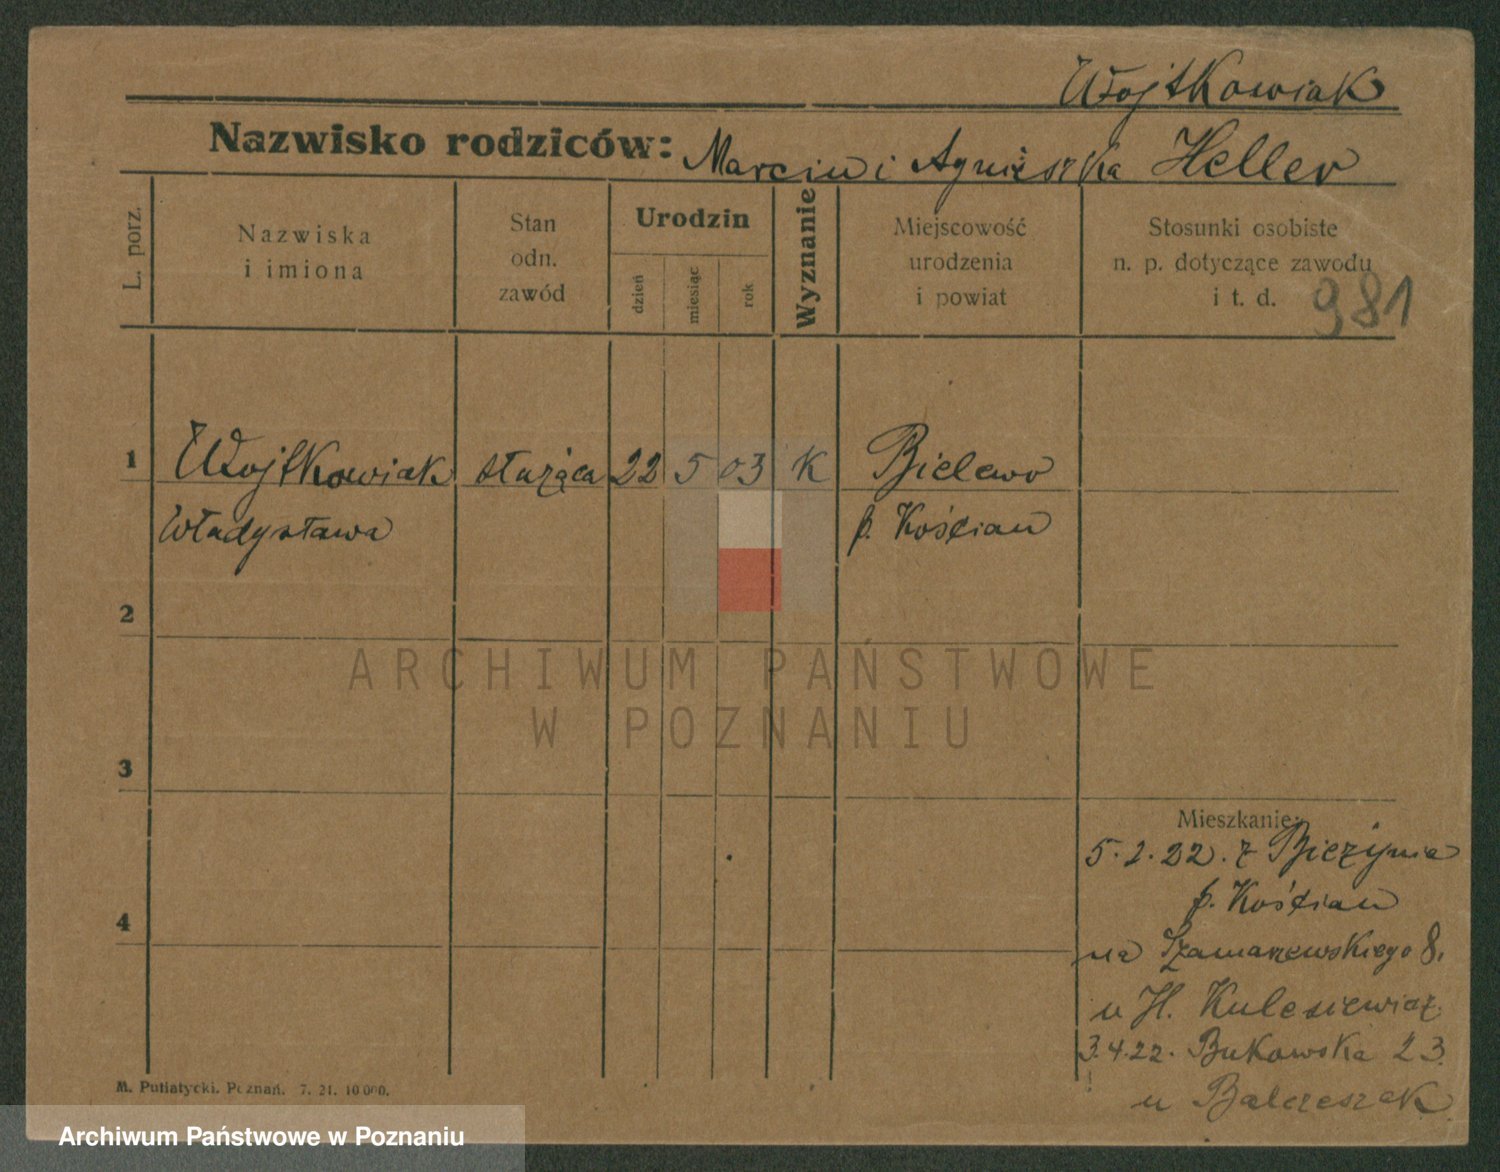 Wojtkowiak
Nazwisko rodziców: Marcin i Agnieszka Heller
L. porz.
Nazwiska
i imiona
Stan
odn.
zawód
Urodzin
dzień
miesiąc
rok
Wyznanie
Miejscowość
urodzenia
i powiat
Stosunki osobiste
n. p. dotyczące zawodu
i t. d.
981
1 Wojtkowiak służąca 22 5 03 K Bielewo
Władysława p. Kościan
2
3
4
Mieszkanie:
5.2.22. z Bieżynia
p. Kościan
na Szamarzewskiego 8.
u H. Kulesiewicz
3.4.22. Bukowska 23
u Balcerczak
M. Putiatycki. Poznań. 7. 21. 10000.
ARCHIWUM PAŃSTWOWE
W POZNANIU
Archiwum Państwowe w Poznaniu